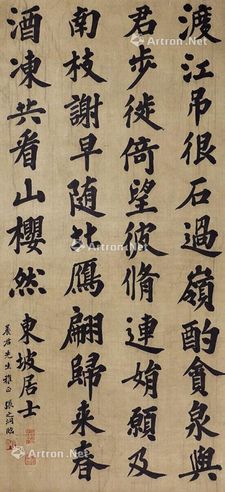 渡江吊很石過嶺酌貪泉與
君步徙倚望彼脩連娟願及
南枝謝早随北鴈翩歸来春
酒凍共看山櫻然 東坡居士
先生雅正 張之洞臨
Artron.Net